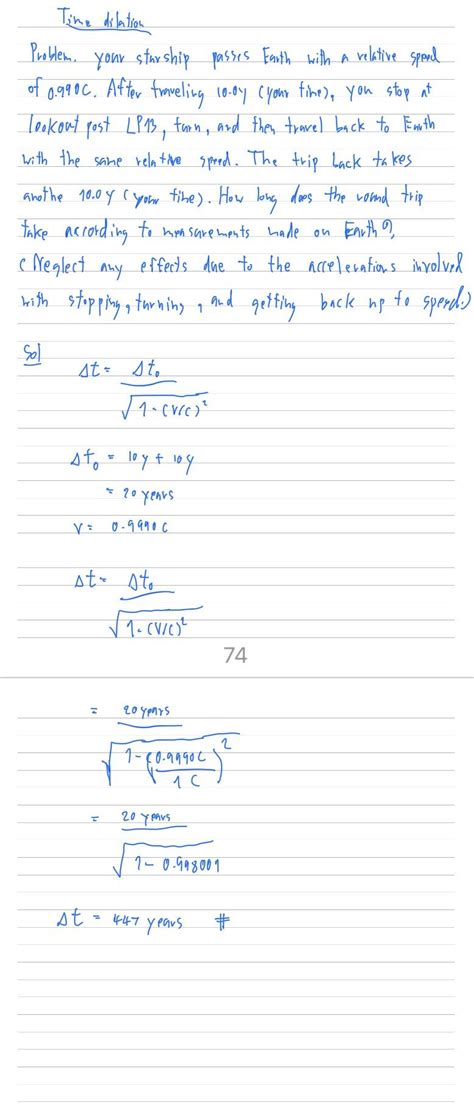 Time dilation
Problem. your starship passes Earth with a relative speed
of 0.990c. After traveling 10.0y (your time), you stop at
lookout post LP13, turn, and then travel back to Earth
with the same relative speed. The trip back takes
anothe 10.0y (your time). How long does the round trip
take according to measurements made on Earth?
(Neglect any effects due to the accelerations involved
with stopping, turning, and getting back up to speed.)
Sol
Δt = Δt₀ / √(1-(v/c)²)
Δt₀ = 10y + 10y
= 20 years
v = 0.9990c
Δt = Δt₀ / √(1-(v/c)²)
74
= 20 years / √(1-(0.9990c/1c)²)
= 20 years / √(1-0.998001)
Δt = 447 years #